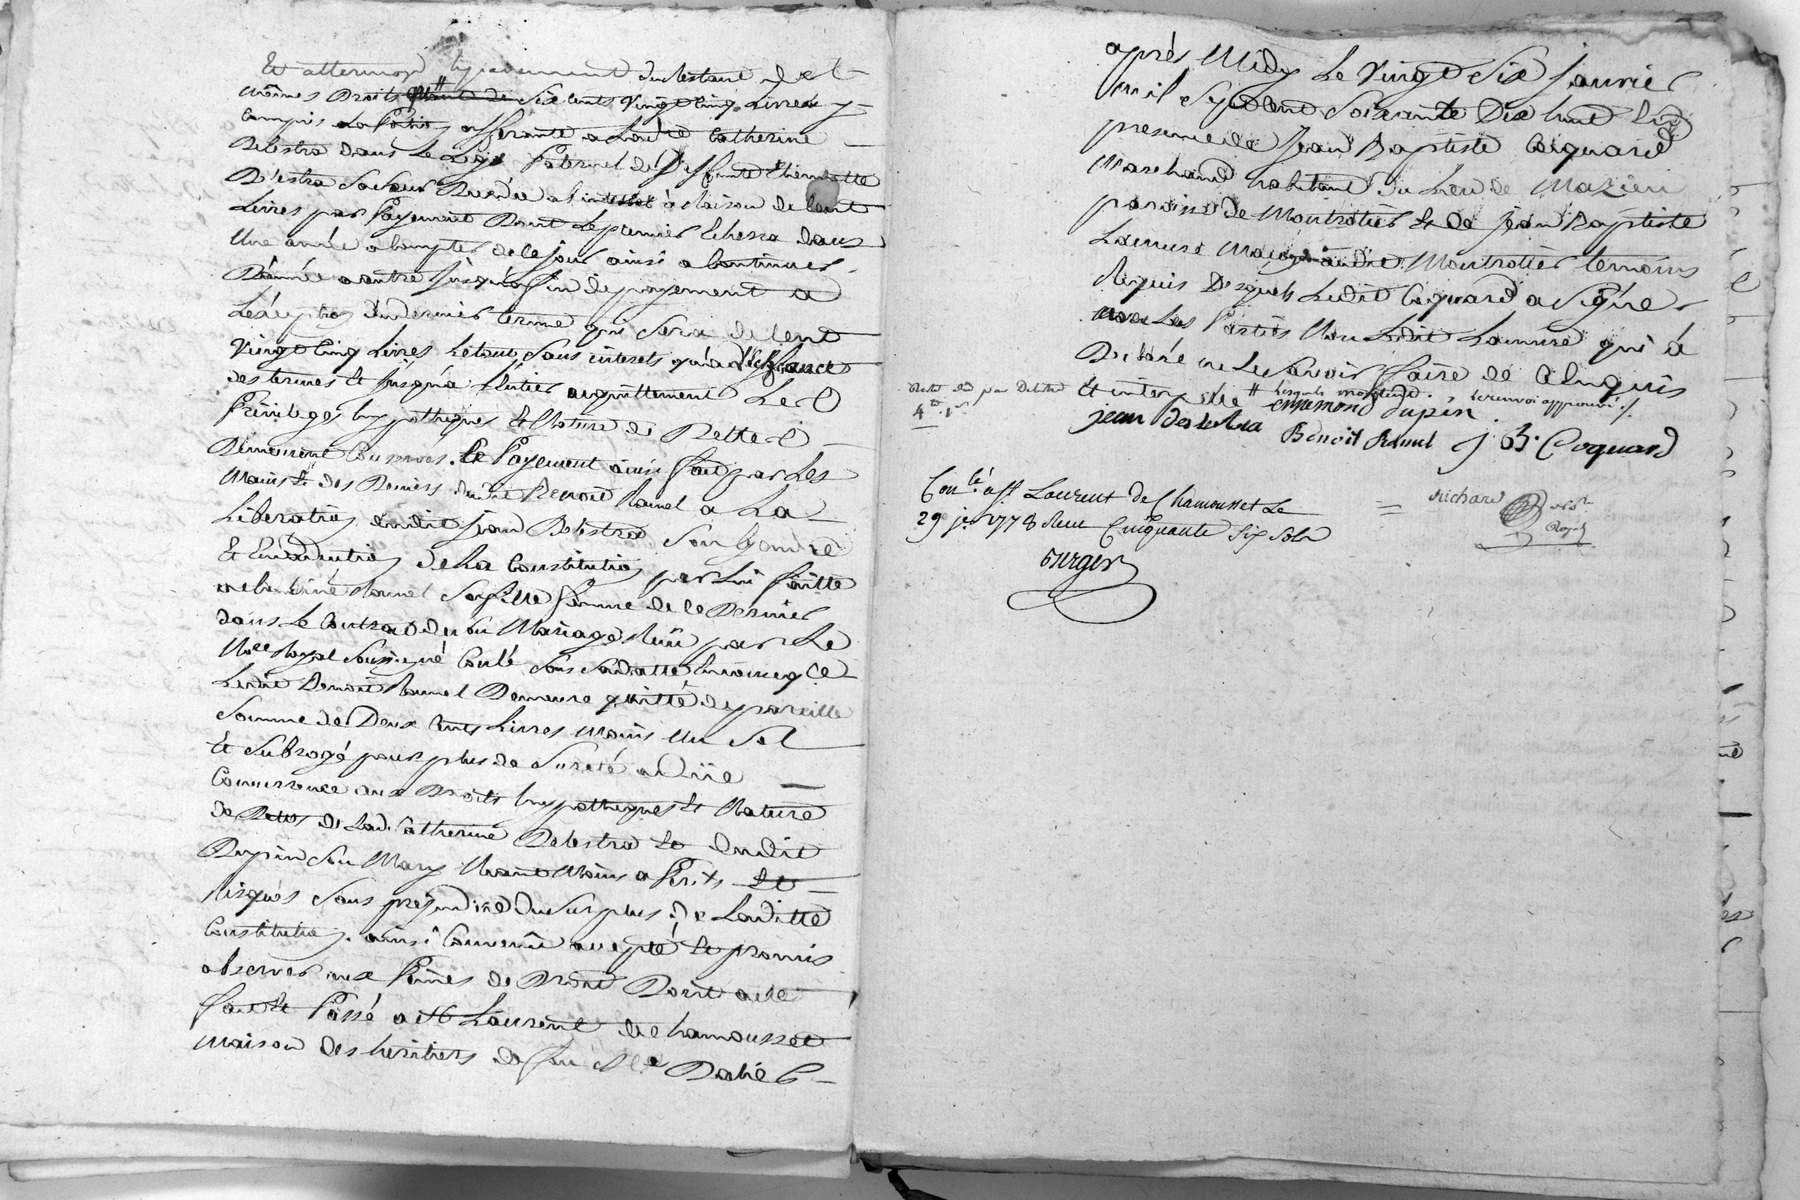 Et attermoyé du restant desd.
mêmes Droits de Six Cents Vingt Cinq Livres y
Compris La Portion afferante a Ladte Catherine
Delestra dans Le Legs Paternel de Deffunte Thiennette
Delestra Sa Sœur Décédée ab intestat à Raison de Cent
Livres par Payement Dont Le premier Echerra dans
Une année a Compter de Ce jour ainsi a Continuer
D'année a autre Jusqu'a fin de payement a
L'exception du dernier terme qui Sera de Cent
Vingt Cinq Livres Le tout Sans interets qu'a Echeance
des termes Et Jusqu'a L'entier acquittement Les
Privileges hypotheques Et Nature de Dette
Demeurent Conservés. Le Payement ainsi fait par Les
Mains Et des Deniers dudit Benoit Ramel a La
Liberation dudit Jean Delestra Son Gendre
Et En deduction de La Constitution par Lui faitte
Ramel Sa fille femme de Ce Dernier
dans Le Contrat de leur Mariage Reçu par Le
Nore Royal Soussigné Conlé Sous Sa datte Au moyen de Ce
Ledit Benoit Ramel Demeure quitté de pareille
Somme de Deux Cents Livres moins Un Sol
Et Subrogé pour plus de Sureté a Düe
Concurrence aux Droits hypotheques Et Nature
de Dettes de Lad. Catherine Delestra Et dudit
Dupin Son Mary Neant Moins a Perils Et
risques Sans prejudice du Surplus de Laditte
Constitution. ainsi Convenu accepté Et promis
observer aux Peines de Droit Dont acte
fait Et Passé a St Laurent de Chamousset
maison des heritiers de feu Me Dalié
après Midy Le Vingt Six Janvier
mil Sept Cent Soixante Dix huit En
presence de Jean Baptiste Coquard
Marchand habitant du Lieu de Mazieu
paroisse de Montrottier Et de Jean Baptiste
Lamure Montrottier temoins
Requis Desquels Ledit Coquard a Signé
avec Les Parties Non Ledit Lamure qui a
Declaré ne Le Savoir faire de Ce Enquis
Et interpellé
renvoi approuvé
ennemond dupin
jean Delestra Benoit Ramel J B. Coquard
Conlé a St Laurent de Chamousset Le
29 jer 1778 Reçu Cinquante Six Sols
Richard